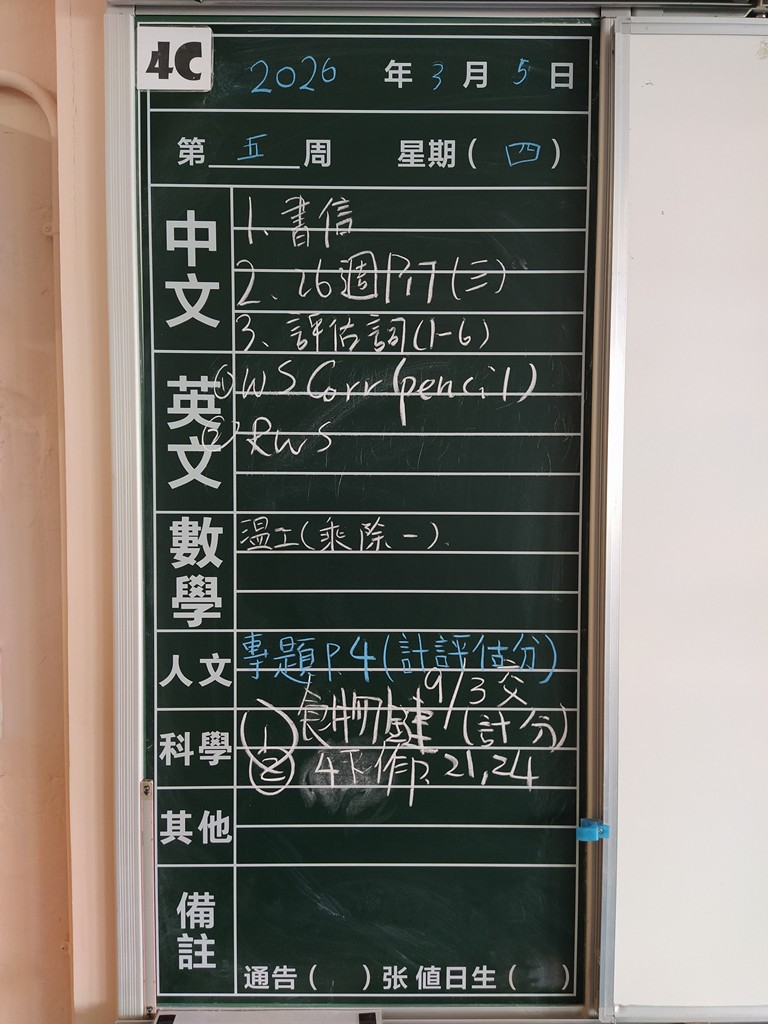 4C
2026 年 3 月 5 日
第 五 周 星期 ( 四 )
中文
1、書信
2、26週P.17(三)
3、評估詞(1-6)
英文
①WS Corr (pencil)
② RWS
數學
溫工(乘除一)
人文
專題 P.4 (計評估分)
9/3交
科學
① 食物鏈 (計分)
② 4下作P.21,24
其他
備註
通告 ( ) 张 值日生 ( )